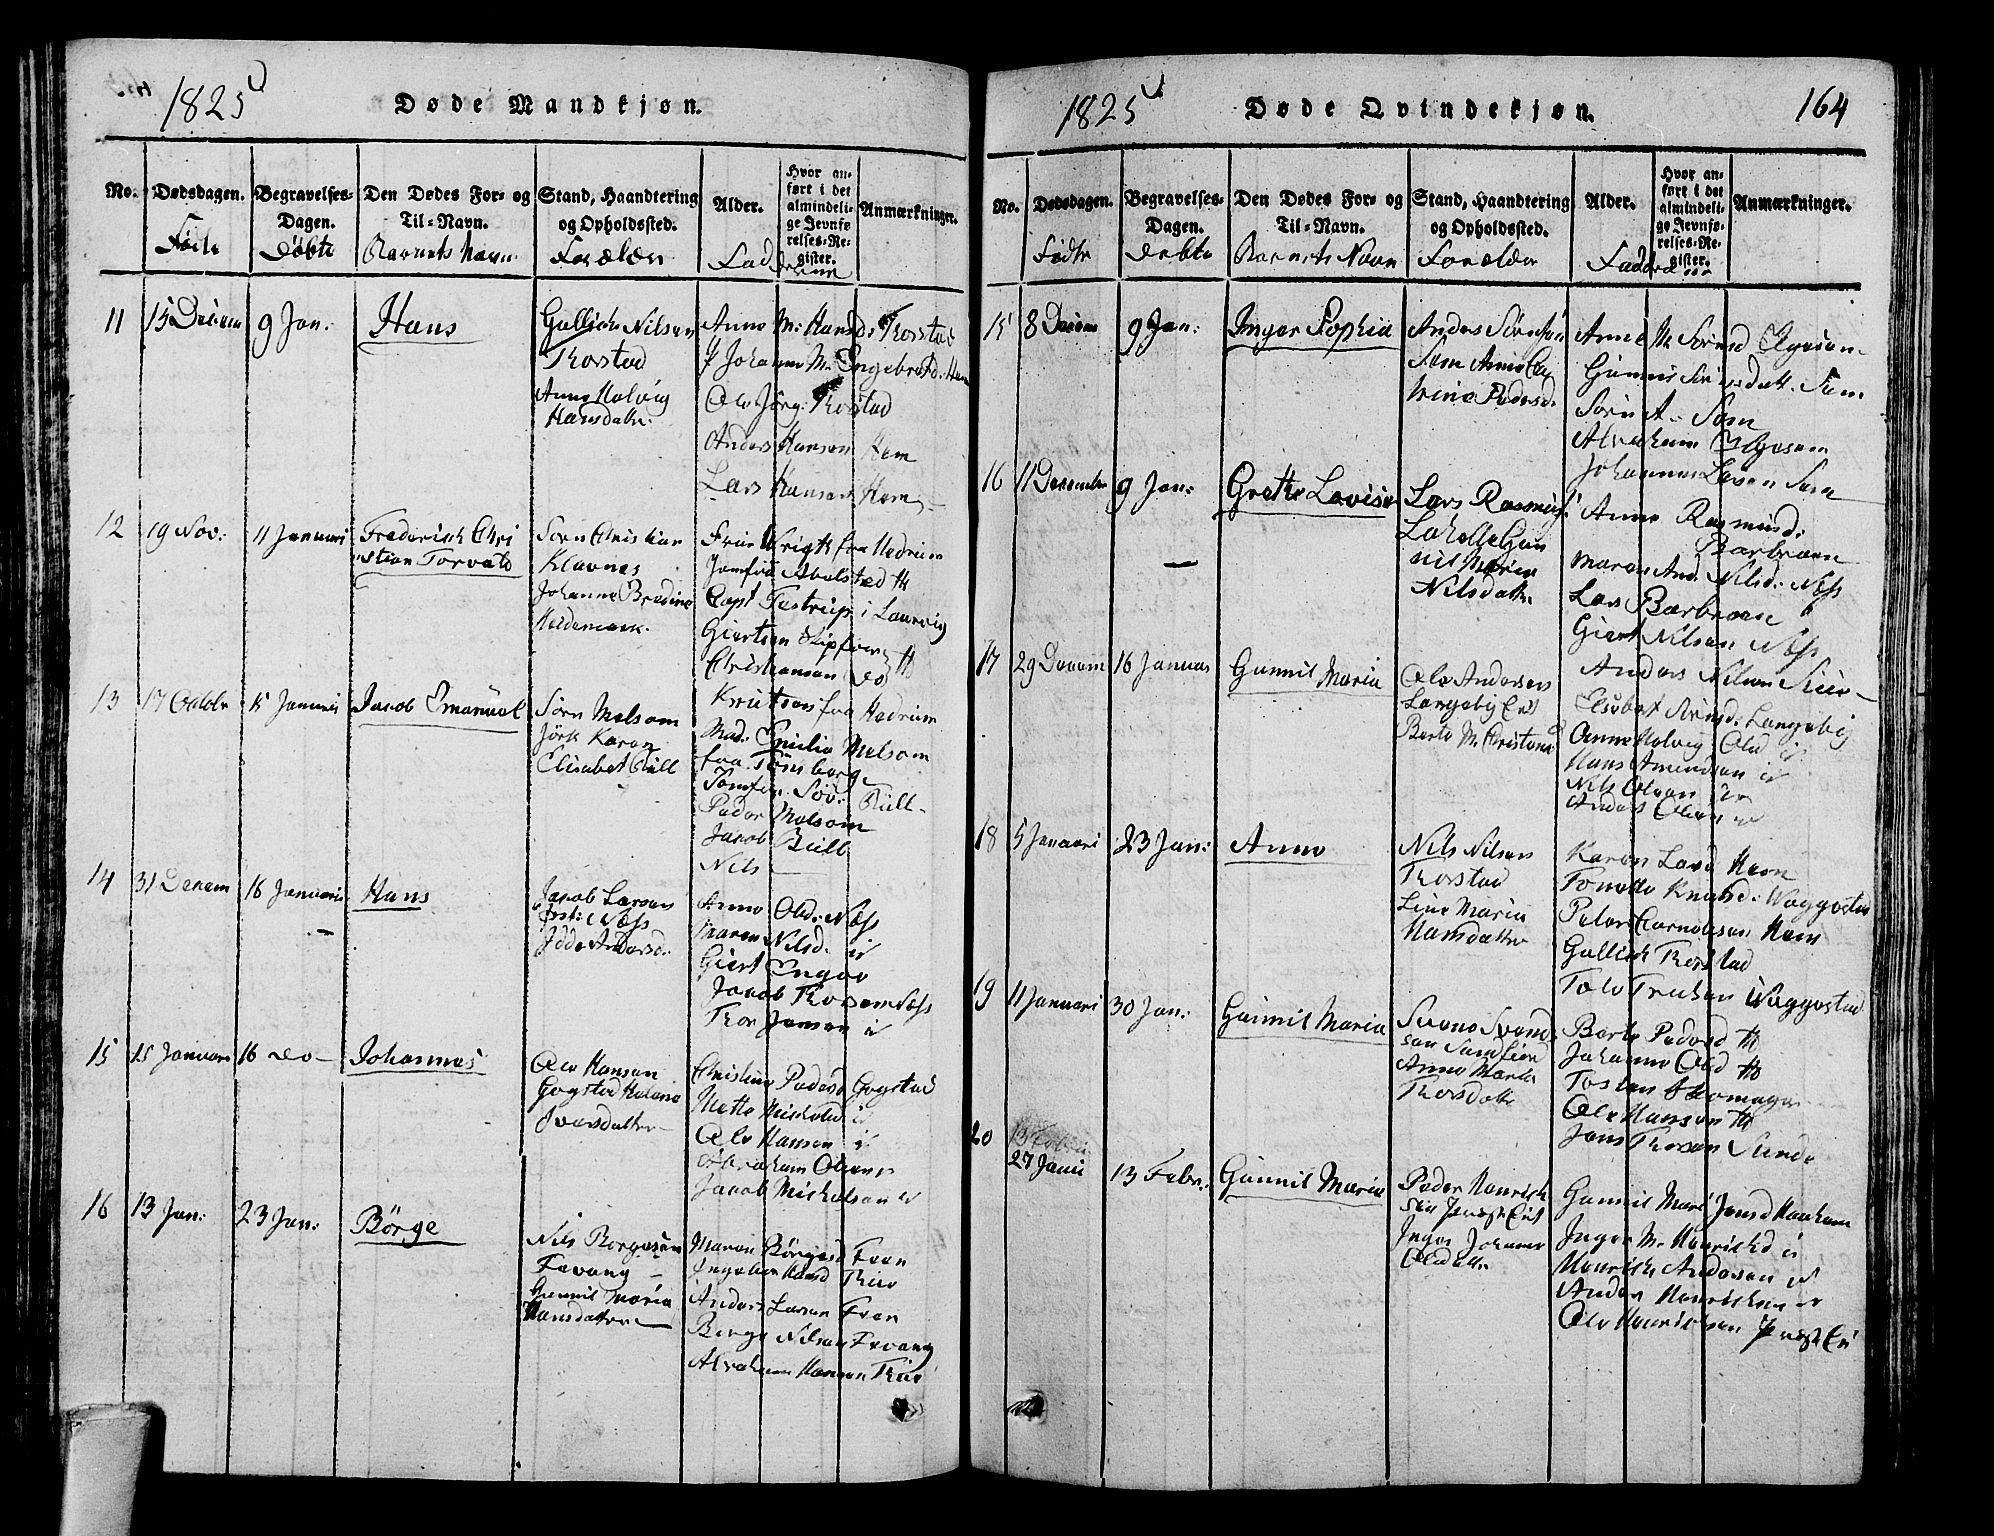 1825
Døde Mandkjøn.
No.
Dødsdagen.
Begravelses-
Dagen.
Den Dødes For- og
Til-Navn.
Stand, Haandtering
og Opholdssted.
Alder.
Hvor an-
ført i det
almindeli-
ge Jevnfø-
relses-Re-
gister.
Anmærkninger.
Føde
Døbte
Barnets Navn
Forælder
Fadderne
11
15 Decem
9 Jan:
Hans
Gullich Nilsen
Thorstad
Anne Helvig
Hansdatter
Anne M. Hansd: Thorstad
Johanne M. Engebretsd: Hem
Ole Jörg: Thorstad
Anders Hansen Hem
Lars Hansen Hem
12
19 Nov:
11 Januari
Frederich Chri
stian Torvald
Sörn Christian
Klavnes
Johanne Bredine
Hedemark.
Frue Wrigth fra Hedrum
Jomfru Abelsted
Capt Testrup i Laurvig
Giertsen Skipfører
Christiansen do
13
17 Octobr
15 Januari
Jacob Emanuel
Sörn Melsom
Jörk Karen
Elisabet Bull
Knutsen fra Hedrum
Mad: Emilie Melsom
fra Tönsberg
Jomfru Söv: Bull
Peder Melsom
Jacob Bull
Nils
14
31 Decem
16 Januari
Hans
Jacob Larsen
Næss
Anders d:
Anne Olsd: Næss
Maren Nilsd. ib
Giert Engøe
Jacob Thorsen Næss
Thor Jensen ib
15
15 Januari
16 do
Johannes
Ole Hansen
Gogstad Helene
Iversdatter
Christine Pedersd Gogstad
Mette Michelsd ib
Ole Hansen ib
Abraham Olsen ib
Jacob Michelsen ib
16
13 Jan:
23 Jan:
Börge
Nils Borgesen
Fevang
Gunnil Maria
Hansdatter
Maren Börgesd Freen
Ingebor Hansd
Anders Larsen Freen
Borge Nilsen Fevang
Abraham Hansen
1825
Døde Qvindekjøn.
164
No.
Dødsdagen.
Begravelses-
Dagen.
Den Dødes For- og
Til-Navn.
Stand, Haandtering
og Opholdssted.
Alder.
Hvor an-
ført i det
almindeli-
ge Jevnfø-
relses-Re-
gister.
Anmærkninger.
Födte
Döbte
Barnets Navn
Forælder
Faddre
15
8 Decem
9 Jan:
Inger Sophia
Anders Sörensen
Sem Anne Ca
trine Pedersd.
Anne M Sörensd
Gunnil Sörensdatt. Sem
Sörn A. Sem
Abraham
Johannes Larsen Sem
16
11 December
9 Jan:
Grethe Lovise
Lars Rasmus:
Gun
nil Maria
Nilsdatter
Anne Rasmusd:
Barbroen
Maren And. Nilsd: Næss
Lars Barbroen
Giert Nilsen Næss
17
29 Decem
16 Januar
Gunnil Maria
Ole Andersen
Langeby
Berte M. Christens
Anders Nilsen
Elsebet Langeby
Anne Helvig Olsd ib
Hans Amundsen ib
Nils Olsen ib
Anders Olsen ib
18
5 Januari
23 Jan:
Anne
Nils Nilsen
Thorstad
Line Maria
Hansdatter
Karen Larsd Hem
Tonette Knudsd: Weggestad
Peter Cornelisen Hem
Gullich Thorstad
Weggestad
19
11 Januari
30 Jan:
Gunnil Maria
Svend Svend
sen
Anne Marte
Thorsdatter
Berte Pedersd
Johanne Olsd
Tosten Skomager
Ole Hansen
Jens Thorsen Sunde
20
13 Febru
27 Janu
13 Febr:
Gunnil Maria
Peder Henrich
sen
Inger Johanne
Olsdatter
Gunnil Mari Jensd
Inger M. Henrichsd ib
Henrich Andersen ib
Anders Henrichsen ib
Ole Henrichsen